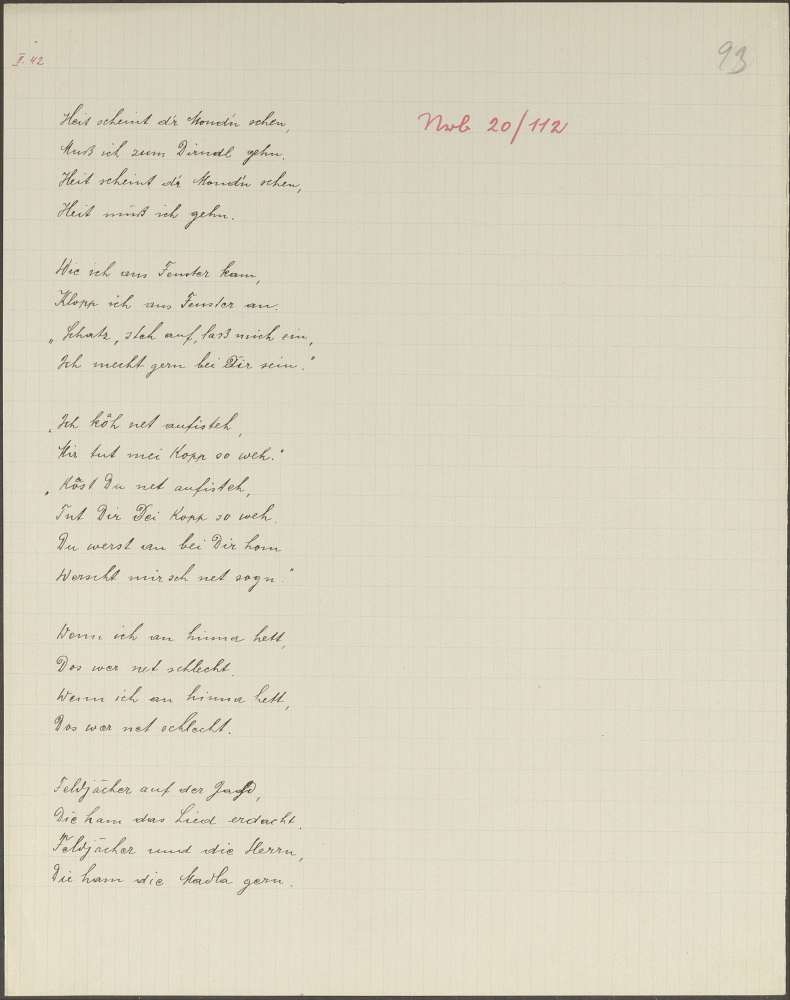 II. 42
93
Nwb 20/112
Heit scheint d'r Mond'n schen,
Muß ich zum Dirndl gehn.
Heit scheint d'r Mond'n schen,
Heit muß ich gehn.
Wie ich ans Fenster kam,
Klopp ich ans Fenster an.
„Schatz, steh auf, laß mich ein,
Ich mecht gern bei Dir sein."
„Ich köh net aufisteh,
Mir tut mei Kopp so weh."
„Köst Du net aufisteh,
Tut Dir Dei Kopp so weh.
Du werst an bei Dir hom
Werscht mirsch net sogn."
Wenn ich an hinna hett,
Dos wer net schlecht.
Wenn ich an hinna hett,
Dos wer net schlecht.
Feldjächer auf der Jagd,
Die ham das Lied erdacht.
Feldjächer und die Herrn,
Die ham die Madla gern.